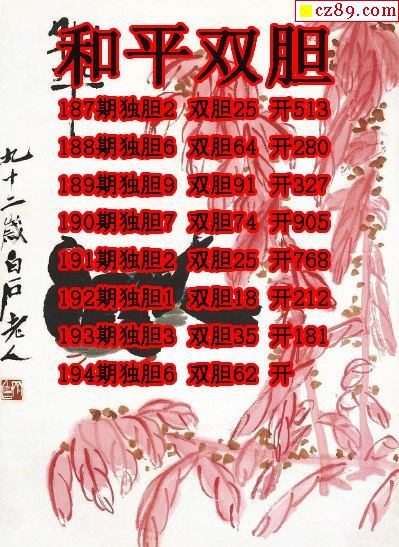 cz89.com
和平双胆
187期独胆2 双胆25 开513
188期独胆6 双胆64 开280
189期独胆9 双胆91 开327
190期独胆7 双胆74 开905
191期独胆2 双胆25 开768
192期独胆1 双胆18 开212
193期独胆3 双胆35 开181
194期独胆6 双胆62 开
九十二岁白石老人